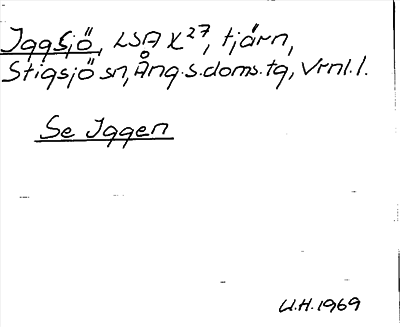 Iggsjö, LSA X27, tjärn,
Stigsjö sn, Ång.s.doms.tg, Vrnl.l.
Se Iggen
U.H. 1969